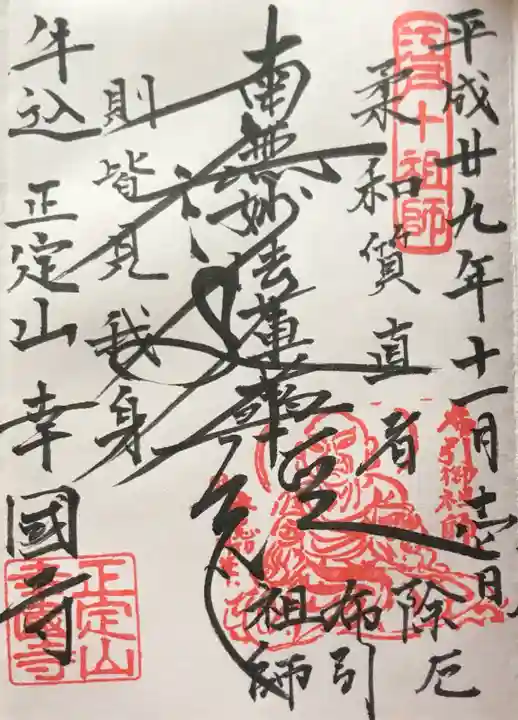 平成廿九年十一月十壱日
江戸十祖師
柔和質直者
除厄
布引
祖師
南無妙法蓮華経
則皆見我身
牛込 正定山 幸國寺
正定山
幸國寺